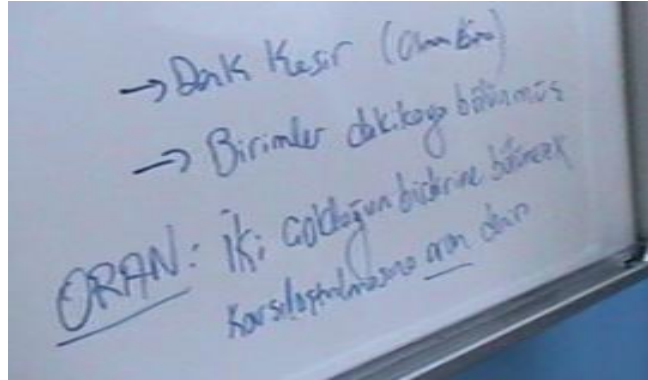 → Denk Kesir
→ Birimler dakikaya bölünmüş
ORAN: İki çokluğun birbirine bölünerek
karşılaştırılmasına oran denir